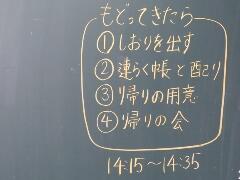 もどってきたら
①しおりを出す
②連らく帳と配り
③帰りの用意
④帰りの会
14:15～14:35